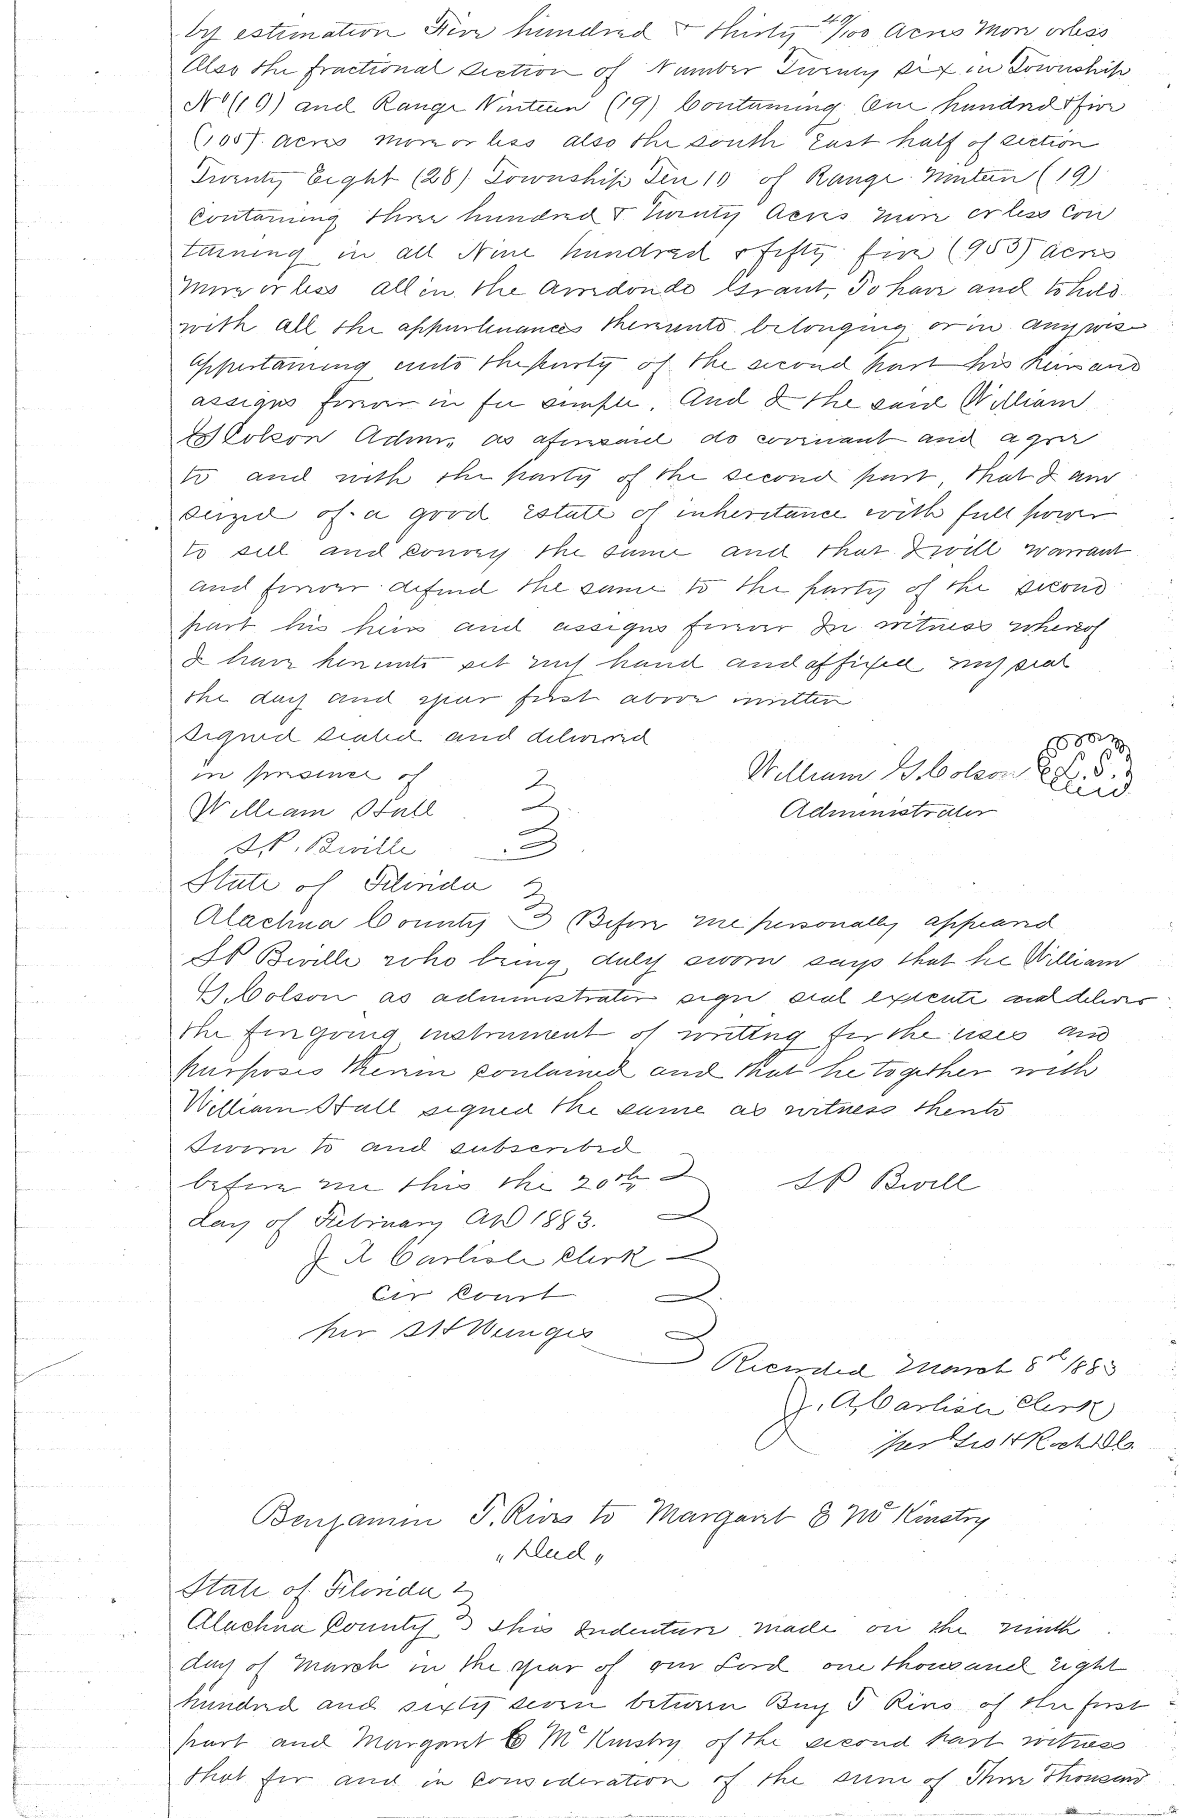 by estimation Five hundred & thirty 49/100 Acres more or less
Also the fractional Section of Number Twenty Six in Township
No (10) and Range Ninteen (19) Containing One hundred & five
(105) acres more or less also the south East half of section
Twenty Eight (28) Township Ten 10 of Range Ninteen (19)
Containing three hundred & Twenty Acres more or less Con
taining in all Nine hundred & fifty five (955) acres
more or less all in the Arredondo Grant, To have and to hold
with all the appurtenances thereunto belonging or in anywise
appertaining unto the party of the second part his heirs and
assigns forever in fee simple. And I the said William
G Colson Admr, as aforesaid do covenant and agree
to and with the party of the second part, that I am
seized of a good Estate of inheritance with full power
to sell and convey the same and that I will warrant
and forever defend the same to the party of the second
part his heirs and assigns forever In witness whereof
I have hereunto set my hand and affixed my seal
the day and year first above written
Signed sealed and delivered
in presence of
William G. Colson L.S.
William Hall
Administrator
S.P. Beville
State of Florida
Alachua County Before me personally appeared
SP Beville who being duly sworn says that he William
G. Colson as administrator sign seal execute and deliver
the foregoing instrument of writing for the uses and
purposes therein contained and that he together with
William Hall signed the same as witness thereto
Sworn to and subscribed
before me this the 20th SP Bevill
day of February AD 1883.
J A Carlisle Clerk
Cir Court
per
Recorded March 8th 1883
J. A. Carlisle Clerk
per Geo H
Benjamin T. Rives to Margaret E McKinstry
"Deed"
State of Florida
Alachua County this Indenture made on the ninth
day of March in the year of our Lord one thousand eight
hundred and sixty seven between Benj T Rives of the first
part and Margaret E McKinstry of the second part witness
that for and in consideration of the sum of Three Thousand